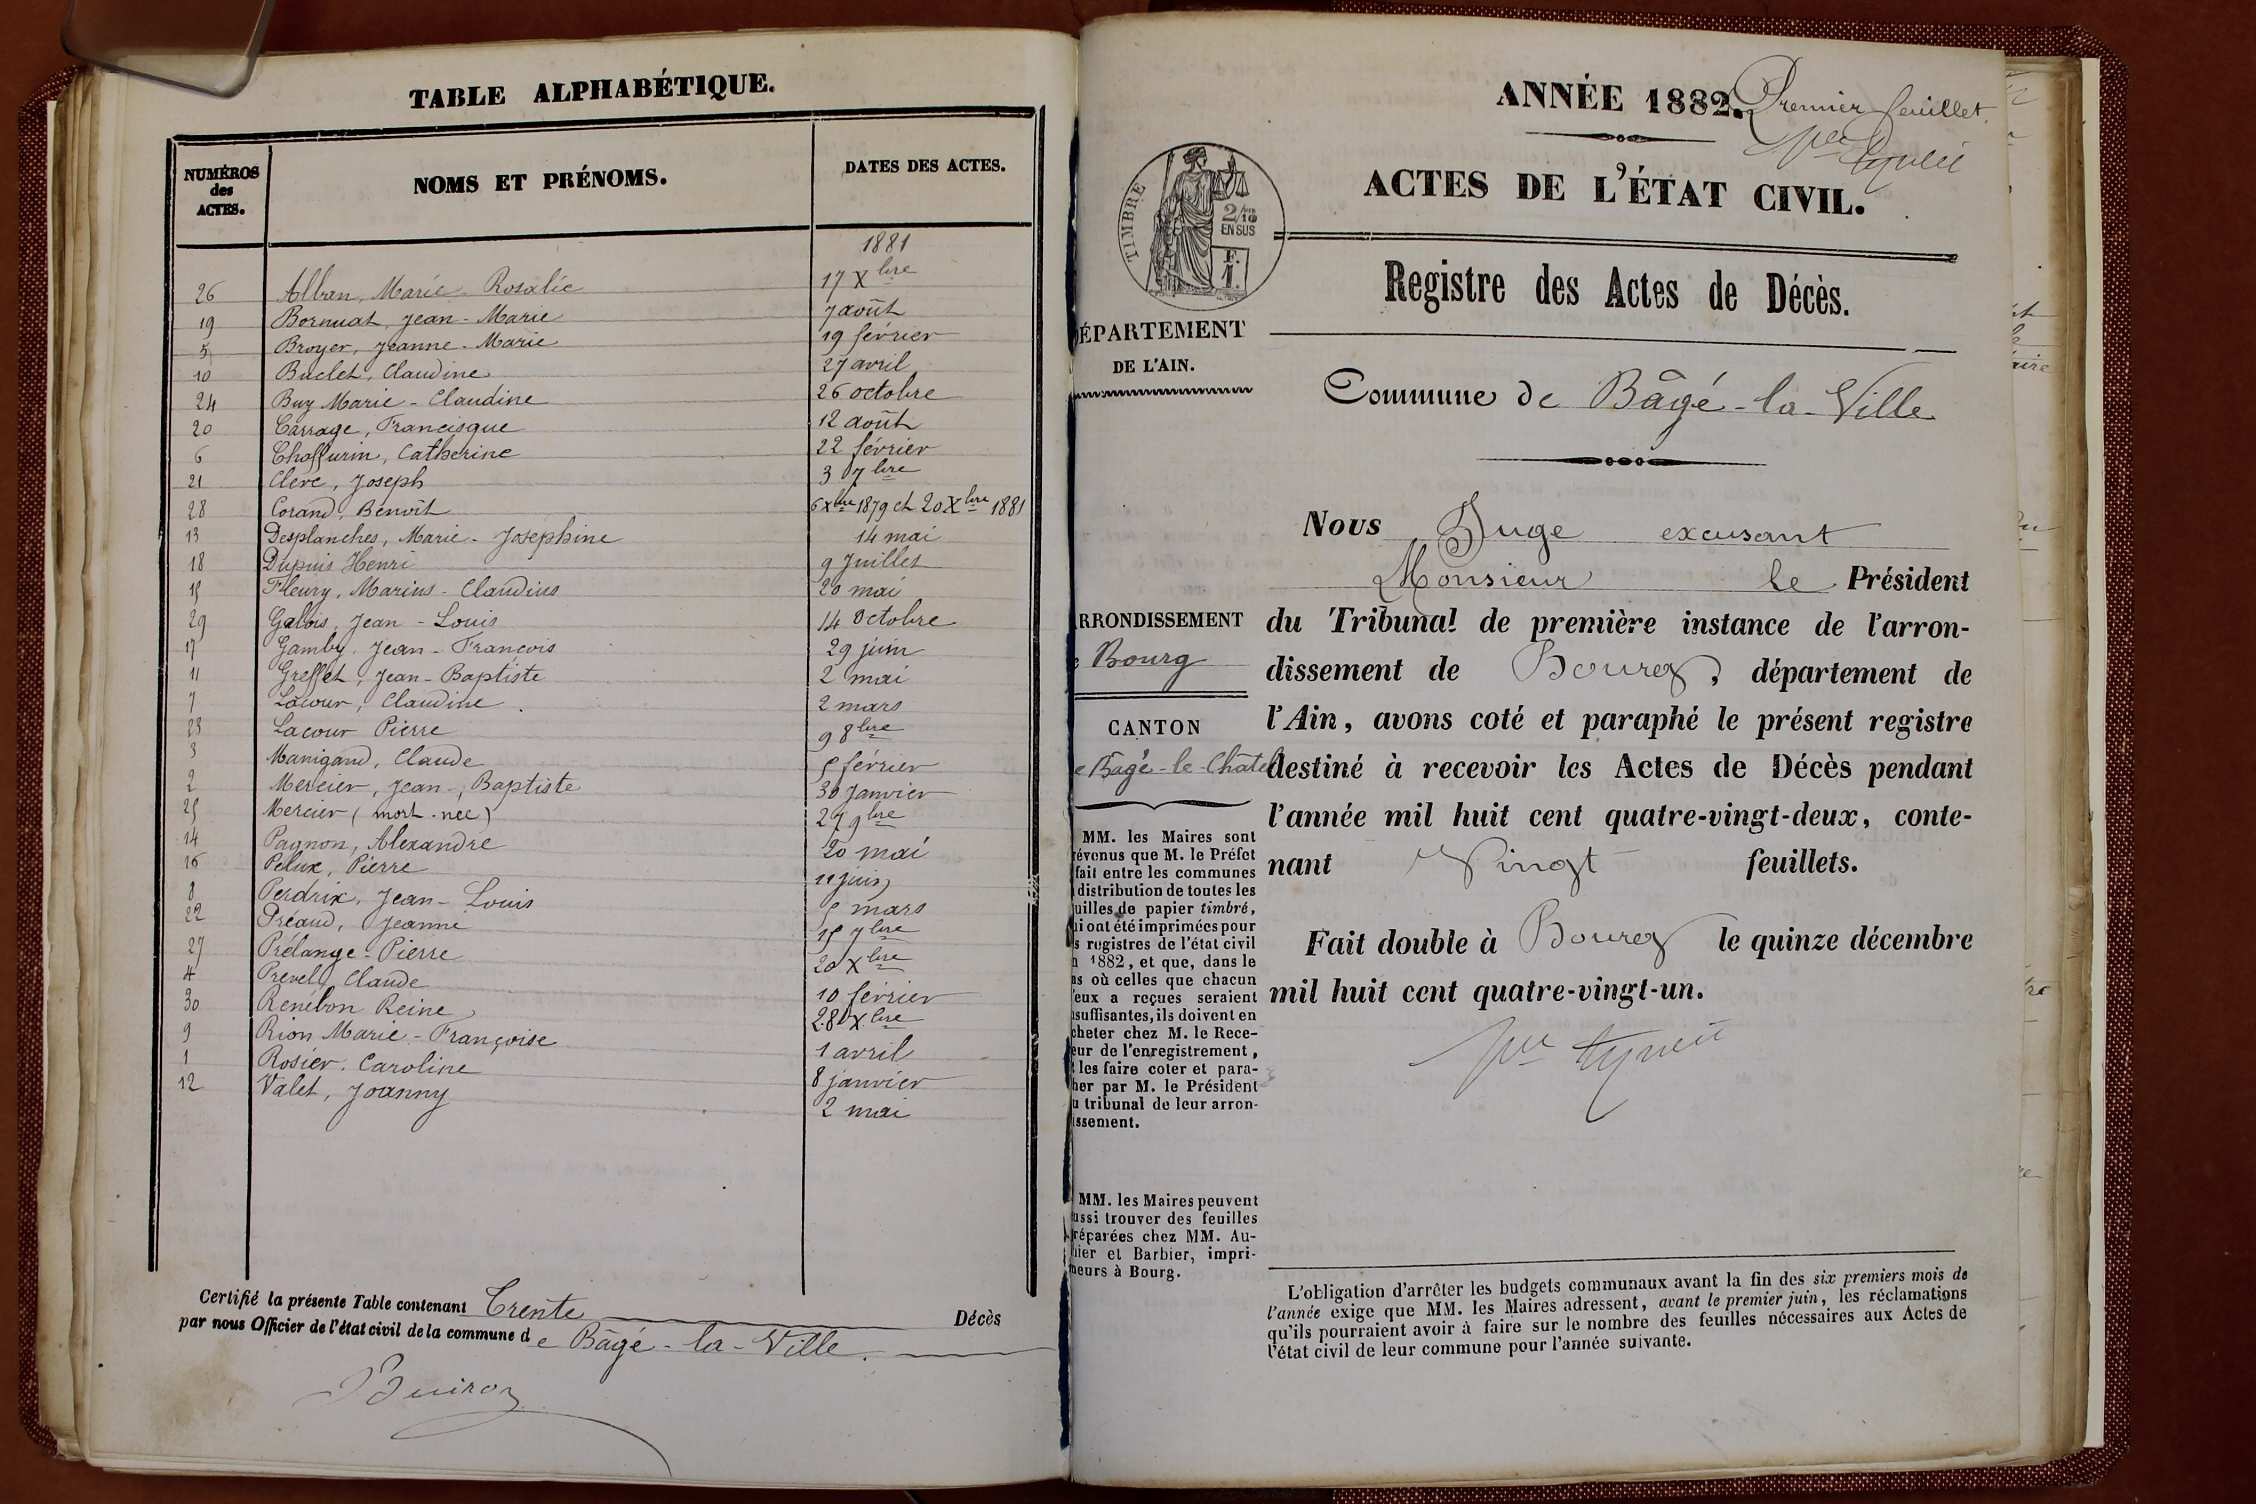 TABLE ALPHABÉTIQUE.
NUMÉROS des ACTES. NOMS ET PRÉNOMS. DATES DES ACTES.
1881
26 Alban, Marie Rosalie 17 Xbre
19 Bornuat, Jean-Marie 7 août
5 Broyer, Jeanne-Marie 19 février
10 Buclet, Claudine 27 avril
24 Buy Marie-Claudine 26 octobre
20 Carrage, Francisque 12 août
6 Chaffurin, Catherine 22 février
21 Clerc, Joseph 3 7bre
28 Corand, Benoît 6 Xbre 1879 et 20 Xbre 1881
13 Desplanches, Marie-Joséphine 14 mai
18 Dupuis Henri 9 Juillet
15 Fleury, Marius-Claudius 20 mai
29 Galois, Jean-Louis 14 Octobre
17 Gamby, Jean-François 29 juin
11 Greffet, Jean-Baptiste 2 mai
7 Lacour, Claudine 2 mars
23 Lacour Pierre 9 8bre
3 Manigand, Claude 5 février
2 Mercier, Jean-Baptiste 30 Janvier
25 Mercier (mort-née) 27 9bre
14 Pagnon, Alexandre 20 mai
16 Pelux, Pierre 11 juin
8 Perdrix, Jean-Louis 5 mars
22 Préaud, Jeanne 15 7bre
27 Prélange-Pierre 20 Xbre
4 Prevel, Claude 10 février
30 Renebon Reine 28 Xbre
9 Rion Marie-Françoise 1 avril
1 Rosier, Caroline 8 janvier
12 Valet, Joanny 2 mai
Certifié la présente Table contenant Trente Décès
par nous Officier de l'état civil de la commune de Bâgé-la-Ville.
ANNÉE 1882.
Premier feuillet
ACTES DE L'ÉTAT CIVIL.
TIMBRE
2/10
EN SUS
F.
1.
Registre des Actes de Décès.
ÉPARTEMENT
DE L'AIN.
Commune de Bâgé-la-Ville
Nous Juge excusant
Monsieur le Président
du Tribunal de première instance de l'arron-
dissement de Bourg, département de
l'Ain, avons coté et paraphé le présent registre
destiné à recevoir les Actes de Décès pendant
l'année mil huit cent quatre-vingt-deux, conte-
nant Vingt feuillets.
Fait double à Bourg le quinze décembre
mil huit cent quatre-vingt-un.
RRONDISSEMENT
e Bourg
CANTON
e Bâgé-le-Châtel
MM. les Maires sont
révenus que M. le Préfet
fait entre les communes
distribution de toutes les
uilles de papier timbré,
ui ont été imprimées pour
s registres de l'état civil
n 1882, et que, dans le
as où celles que chacun
'eux a reçues seraient
nsuffisantes, ils doivent en
cheter chez M. le Rece-
eur de l'enregistrement,
les faire coter et para-
her par M. le Président
u tribunal de leur arron-
issement.
MM. les Maires peuvent
ussi trouver des feuilles
réparées chez MM. Au-
hier et Barbier, impri-
meurs à Bourg.
L'obligation d'arrêter les budgets communaux avant la fin des six premiers mois de
l'année exige que MM. les Maires adressent, avant le premier juin, les réclamations
qu'ils pourraient avoir à faire sur le nombre des feuilles nécessaires aux Actes de
l'état civil de leur commune pour l'année suivante.